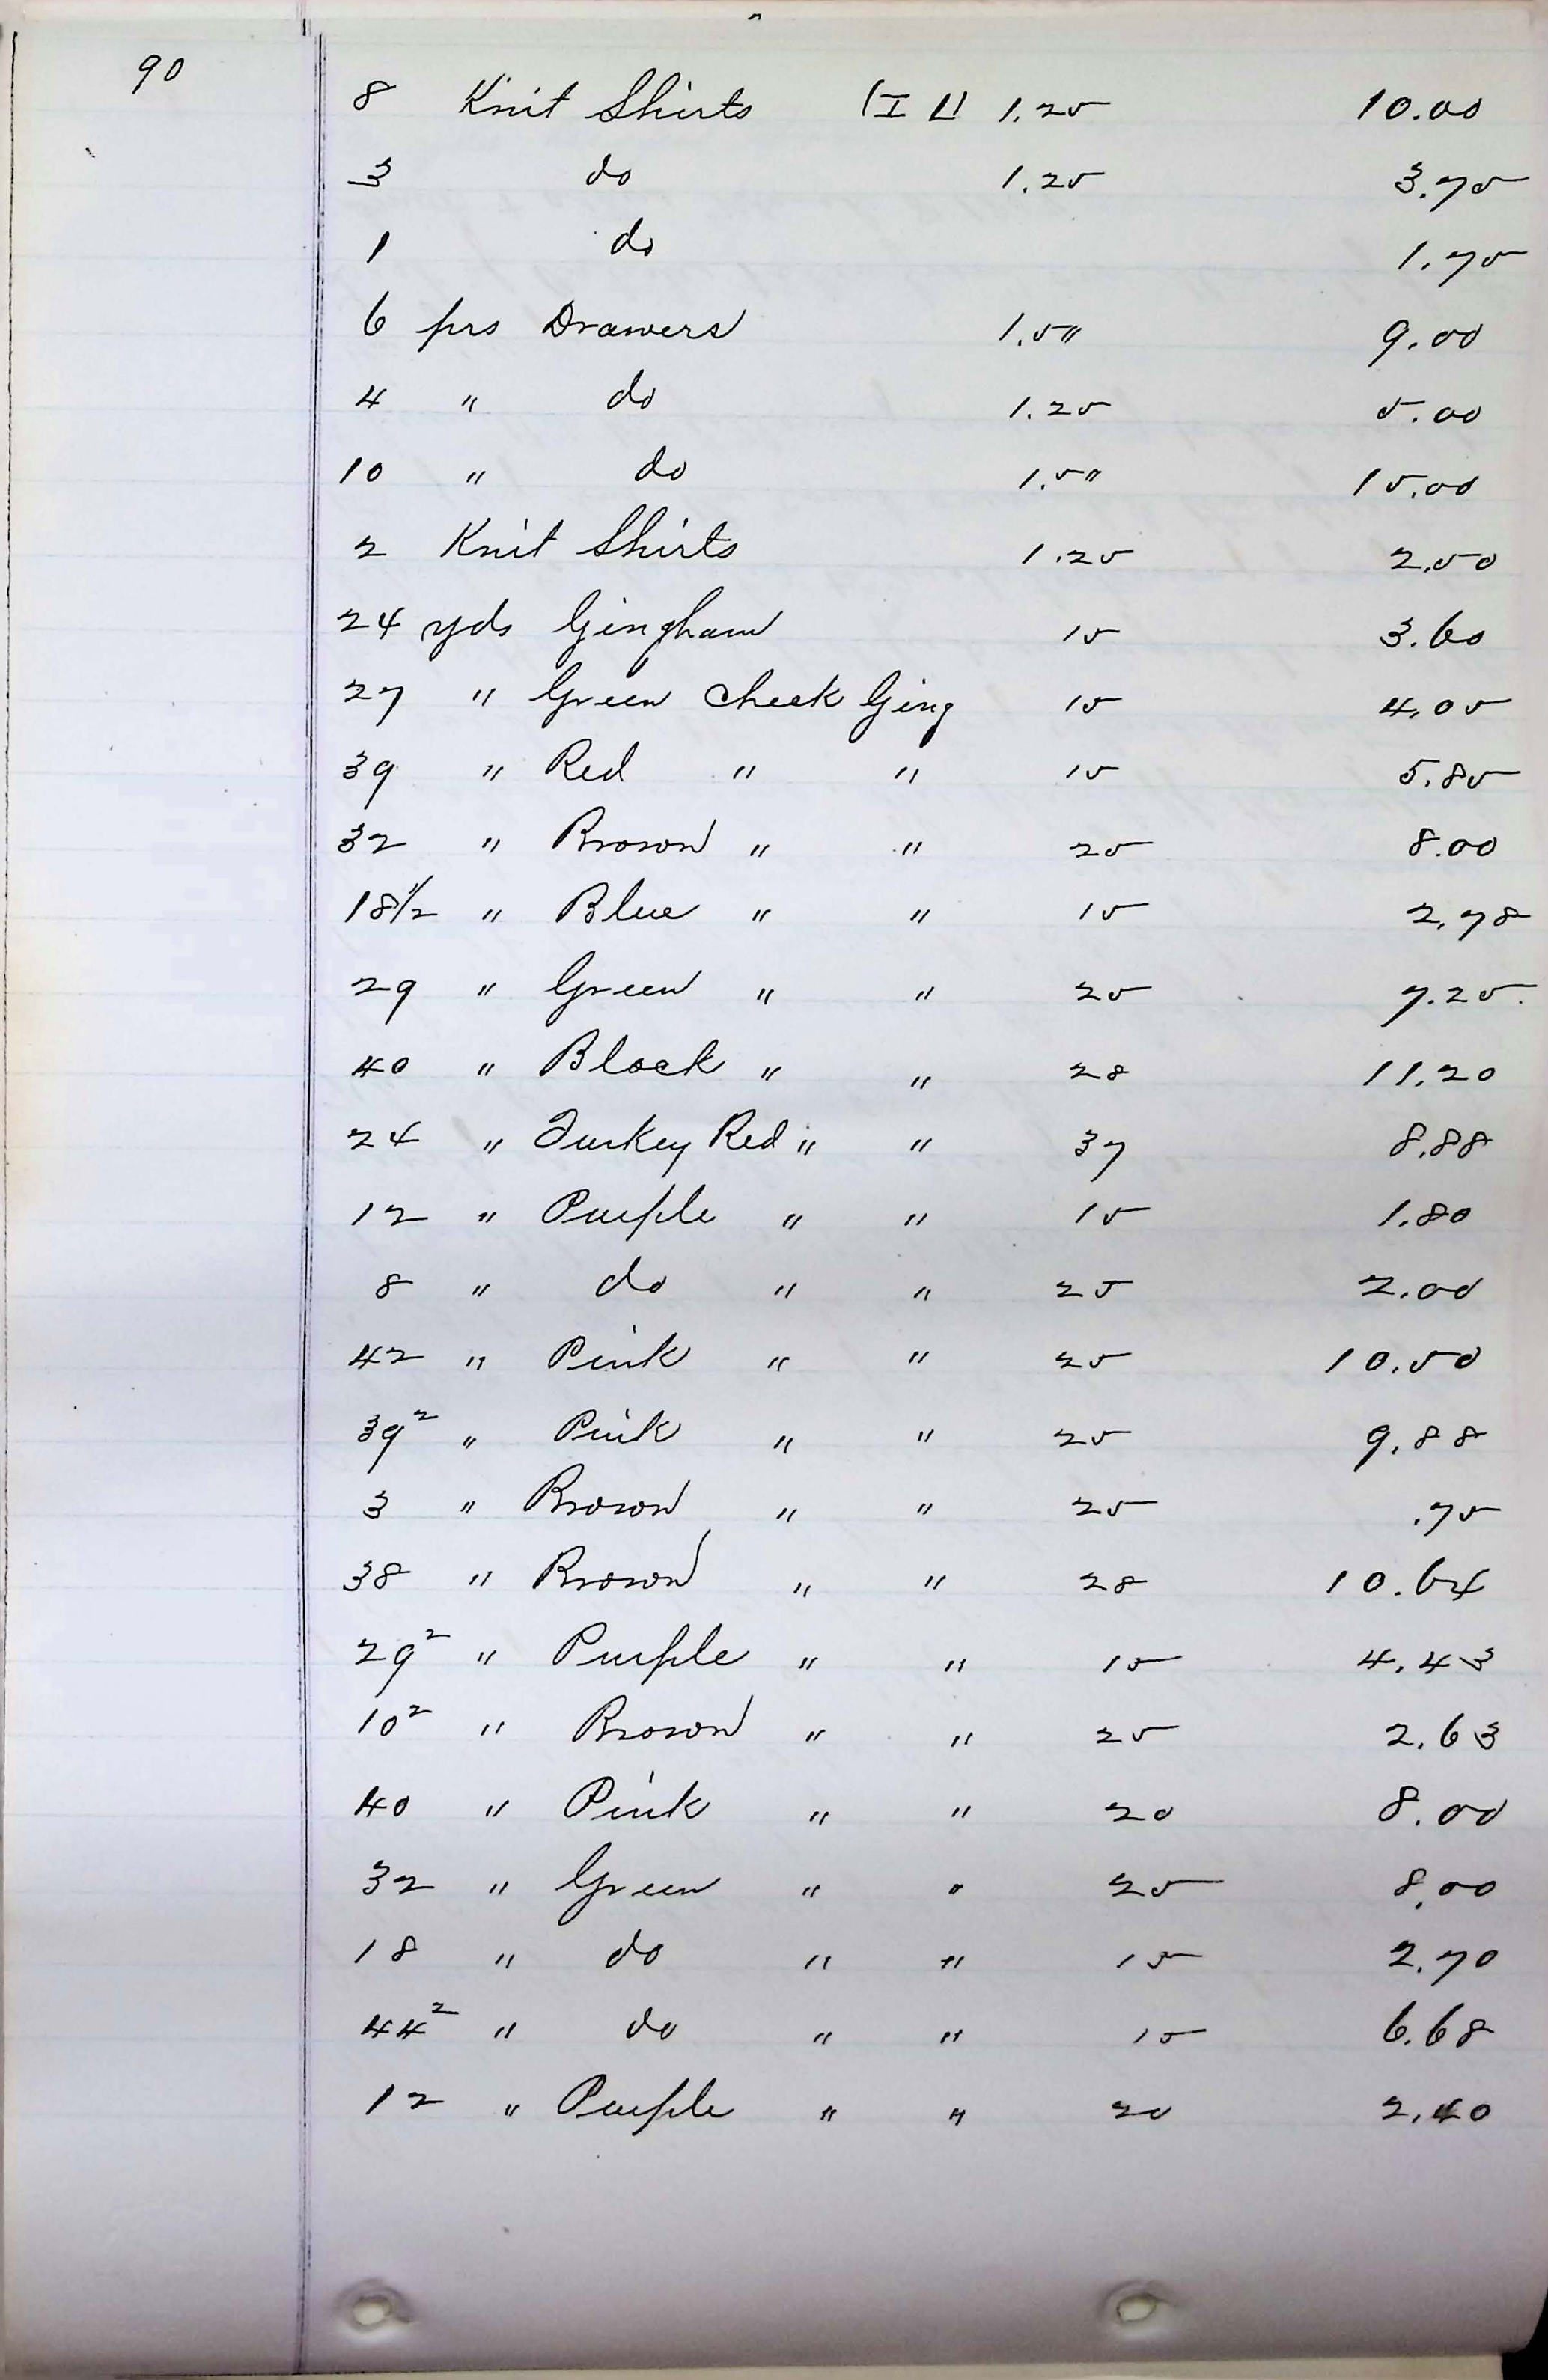 90
8 Knit Shirts (I L) 1.25 10.00
3 do 1.25 3.75
1 do 1.75
6 prs Drawers 1.5" 9.00
4 " do 1.25 5.00
10 " do 1.5" 15.00
2 Knit Shirts 1.25 2.50
24 yds Gingham 15 3.60
27 " Green Check Ging 15 4.05
39 " Red " " 15 5.85
32 " Brown " " 25 8.00
18 1/2 " Blue " " 15 2.78
29 " Green " " 25 7.25
40 " Black " " 28 11.20
24 " Turkey Red " " 37 8.88
12 " Purple " " 15 1.80
8 " do " " 25 2.00
42 " Pink " " 25 10.50
39² " Pink " " 25 9.88
3 " Brown " " 25 .75
38 " Brown " " 28 10.64
29² " Purple " " 15 4.43
10² " Brown " " 25 2.63
40 " Pink " " 20 8.00
32 " Green " " 25 8.00
18 " do " " 15 2.70
44² " do " " 15 6.68
12 " Purple " " 20 2.40